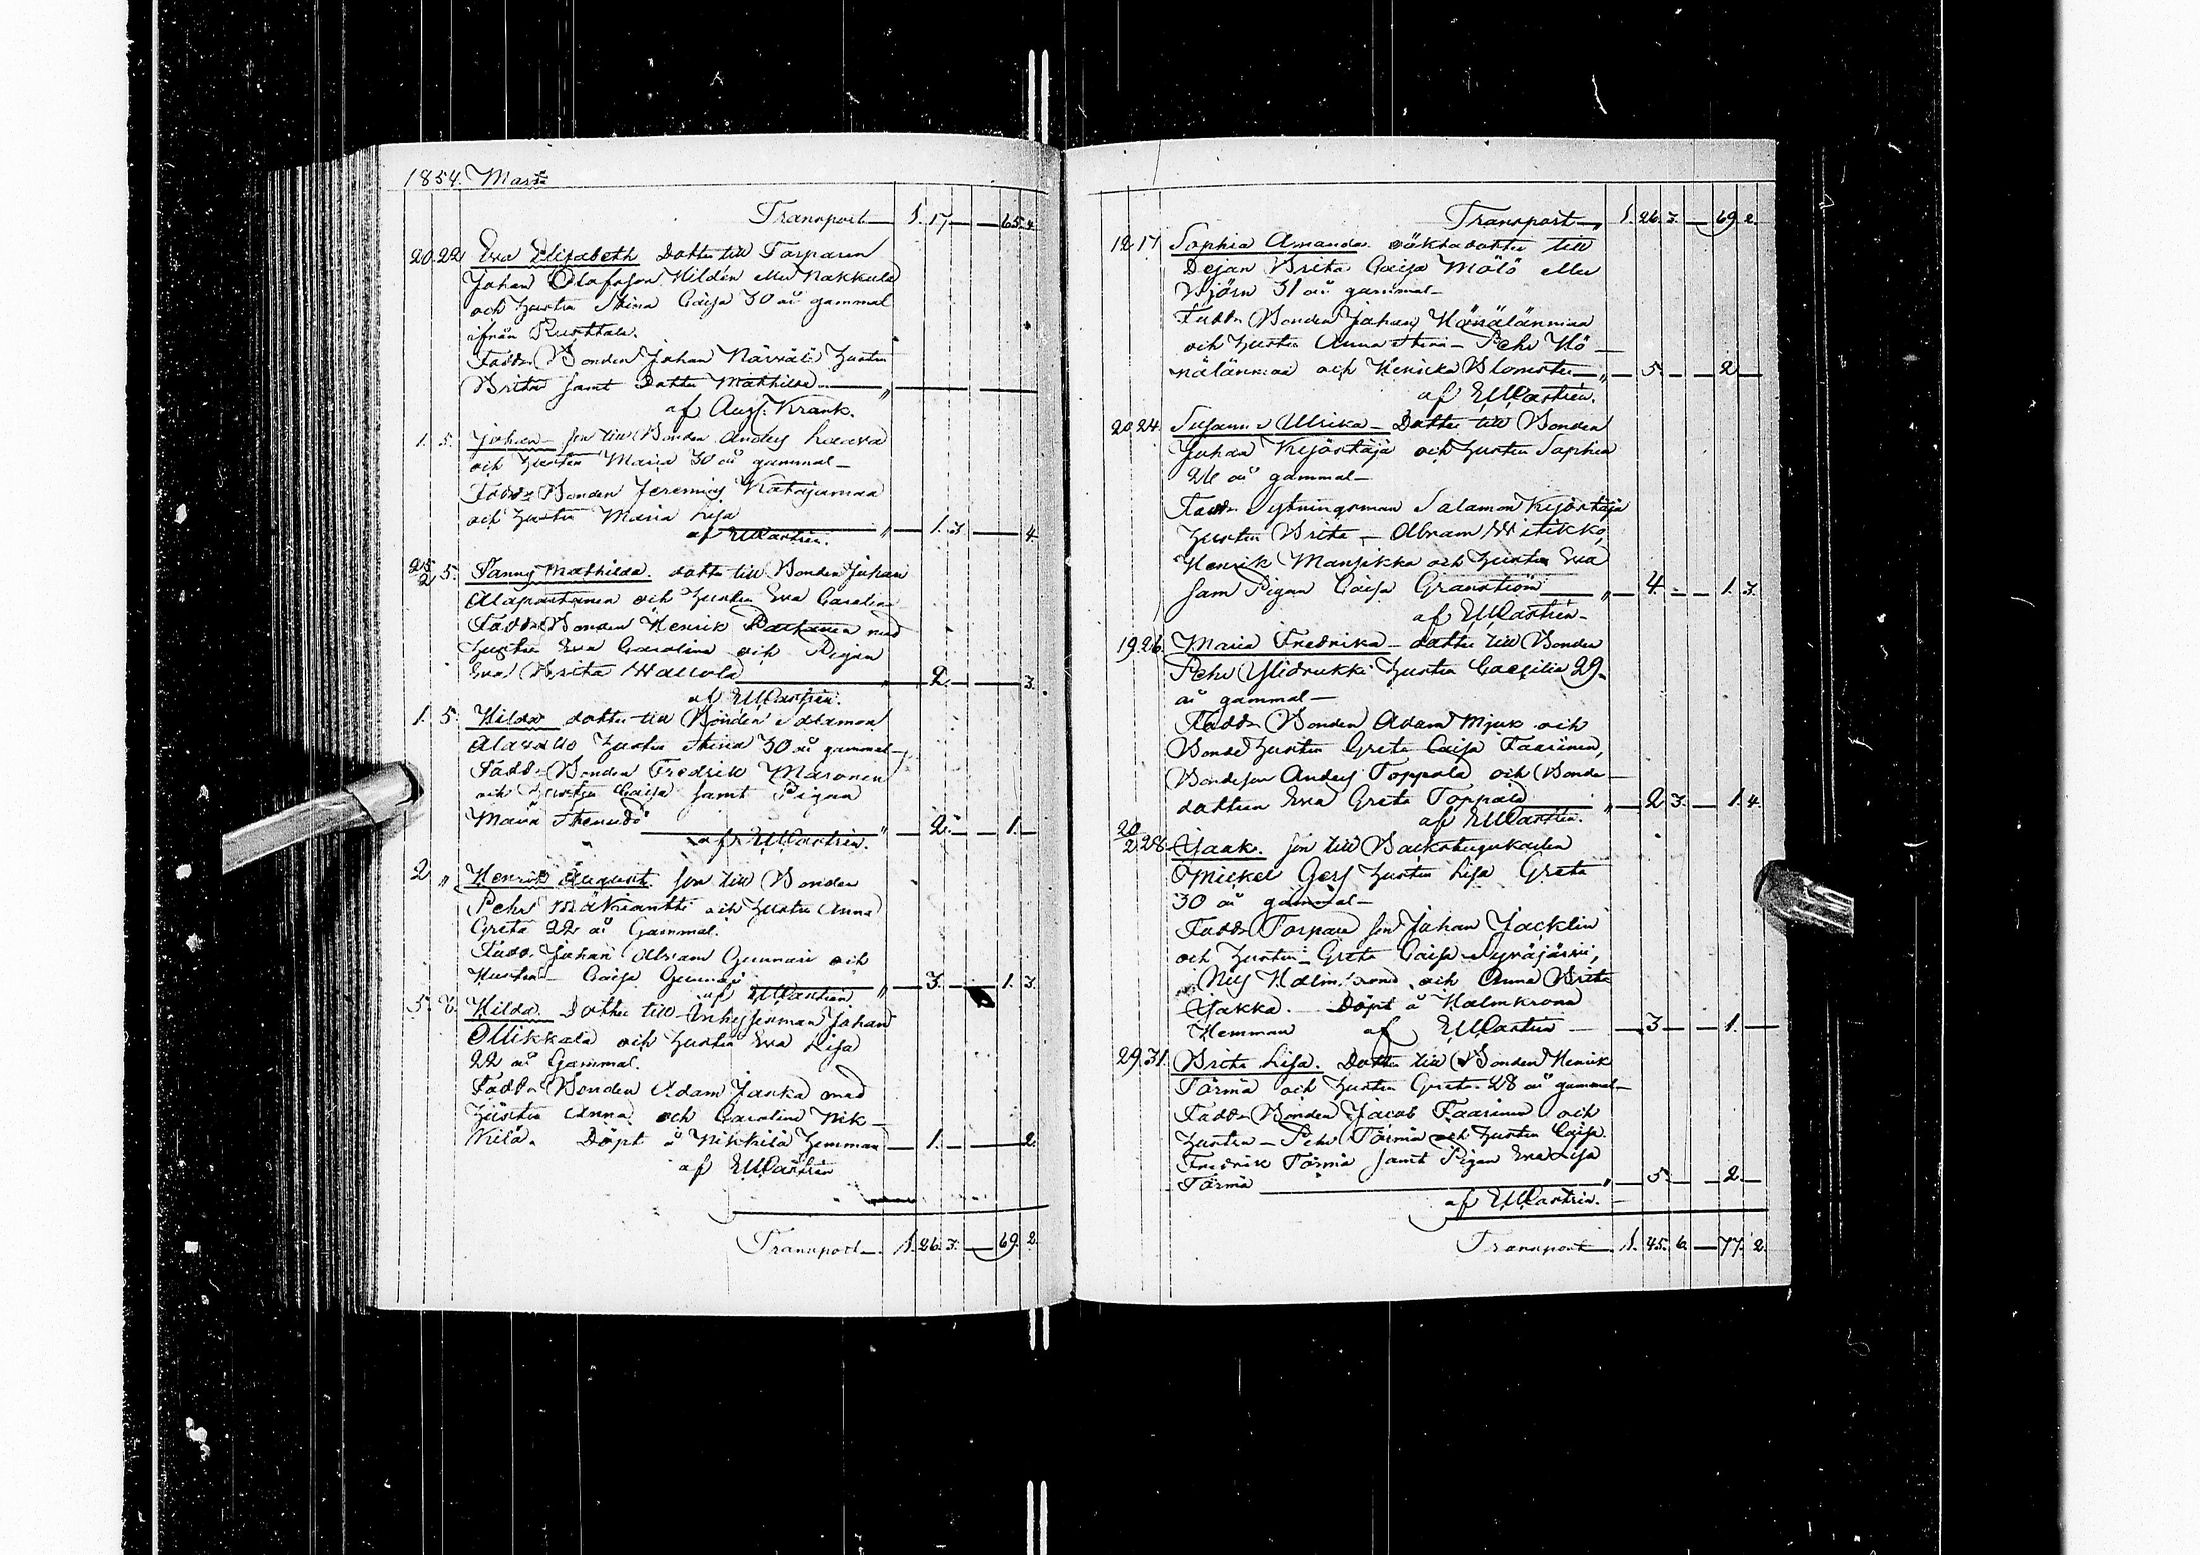 1854. Martii
Transport 1. 17 65. 4.
20. 22. Eva Elisabeth Dotter till Torparen
Johan Olofsson Hildén eller Nakkula
och hustru Stina Caisa 30 år gammal
ifrån
Fadd. Bonden Johan Närvä hustru
Brita samt Dotter Mathilda
af Aug. Krank.
1. 5. Johan son till Bonden Anders Laava
och hustru Maria 30 år gammal
Fadd. Bonden Jeremias Katajamaa
och hustru Maria Lisa 1. 3 4.
af E W Castrén.
25/2 5. Fanny Mathilda. dotter till Bonden Johan
Alaportimen och hustru Eva Carolina
Fadd. Bonden Henrik med
hustru Eva Carolina och Pigan
Eva Brita 2. 3.
af E W Castrén.
1. 5. Hilda dotter till Bonden
hustru Stina 30 år gammal
Fadd. Bonden Fredrik Maronen
och hustru Caisa samt Pigan
Maria 2. 1.
af E W Castrén.
2 „ Henrik August. son till Bonden
Pehr och hustru Anna
Greta 22 år Gammal.
Fadd. Johan Abram Gunnari och
Hustru Caisa Gunnari 3. 1. 3.
af E W Castrén
5. 6. Hilda. Dotter till Inhysesman Johan
Ollikkala och hustru Eva Lisa
22 år Gammal.
Fadd. Bonden Adam Janka med
hustru Anna och Carolina Nik-
kilä. Döpt å Nikkilä Hemman 1. 2.
af E W Castrén
Transport 1. 26. 3. 69. 2.
Transport 1. 26. 3. 69. 2.
12. 17 Sophia Amanda. oäkta dotter till
Dejan Brita Caisa Mölö eller
Björn 31 år gammal
Fadd. Bonden Johan Hönälänmaa
och hustru Anna Stina Pehr Hö-
nälänmaa och Henrika Blomster 5. 2
af E W Castrén.
20. 24. Susanna Ulrika Dotter till Bonden
Johan Kyöstäjä och hustru Sophia
26 år gammal
Fadd. Sytningsman Salamon Kyöstäjä
hustru Brita Abram Witikko,
Henrik Mansikka och hustru Eva
sam Pigan Caisa Granström 4. 1. 3.
af E W Castrén
19. 26. Maria Fredrika dotter till Bonden
Pehr Yliörukki hustru Caecilia 29.
år gammal
Fadd. Bonden Adam Mjuk och
Bonde hustru Greta Caisa Faarinen,
Bondeson Anders Toppola och Bonde
dottren Eva Greta Toppola 2 3. 1. 4.
af E W Castrén.
20/2 28. Isaak. son till Backstugukarlen
Mickel Gers hustru Lisa Greta
30 år gammal
Fadd. Torpare son Johan Jacklin
och hustru Greta Caisa Syväjärvi,
Nils Halmkrona och Anna Brita
Jakka. Döpt å Halmkrona
Hemman af E W Castrén 3 1.
29. 31. Brita Lisa. Dotter till Bonden Henrik
Törmä och hustru Greta 28 år gammal
Fadd. Bonden Jacob Faarinen och
hustru Pehr Törmä och hustru Caisa.
Fredrik Törmä samt Pigan Eva Lisa
Törmä 5. 2.
af E W Castrén.
Transport 1. 45. 6. 77. 2.